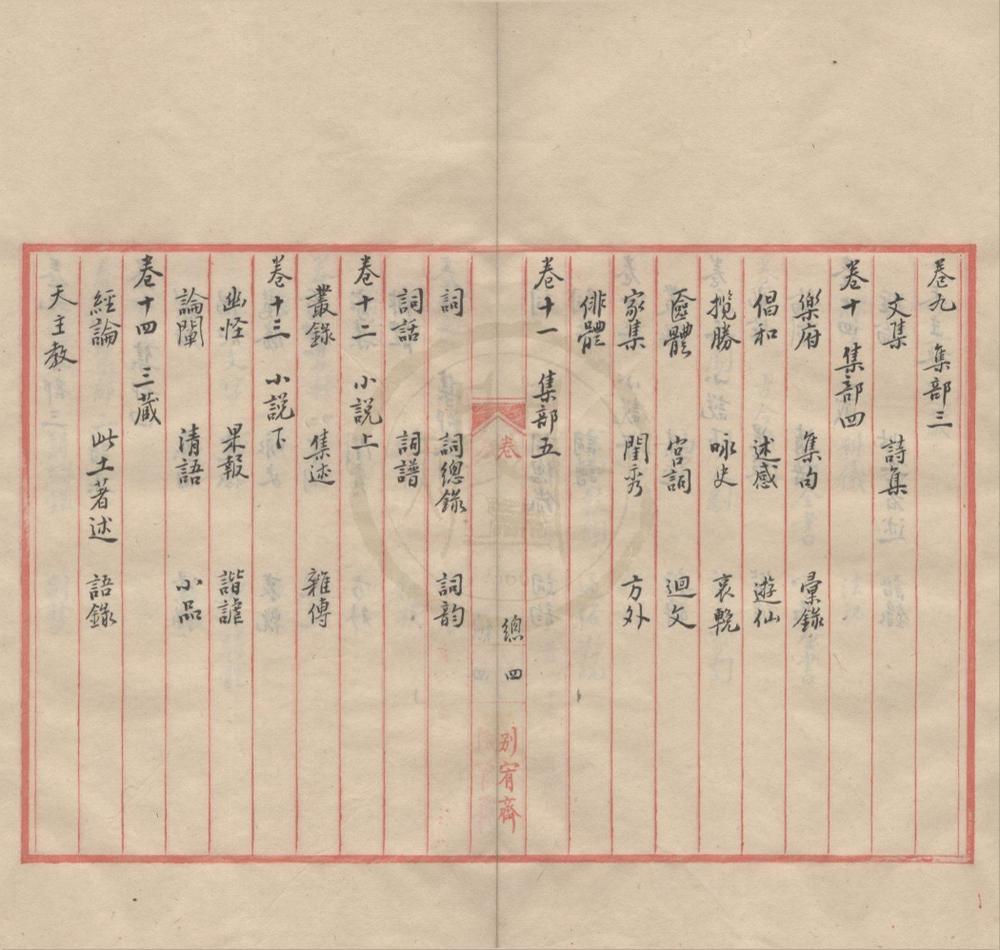 卷九 集部三
文集 詩集
卷十四 集部四
樂府 集句 彙錄
倡和 述感 遊仙
攬勝 咏史 哀輓
奩體 宮詞 迴文
家集 閨秀 方外
俳體
卷十一 集部五
卷 總四 別宥齋
詞 詞總錄 詞韵
詞話 詞譜
卷十二 小說上
叢錄 集述 雜傳
卷十三 小說下
幽怪 果報 諧謔
論闡 清語 小品
卷十四 三藏
經論 此土著述 語錄
天主教